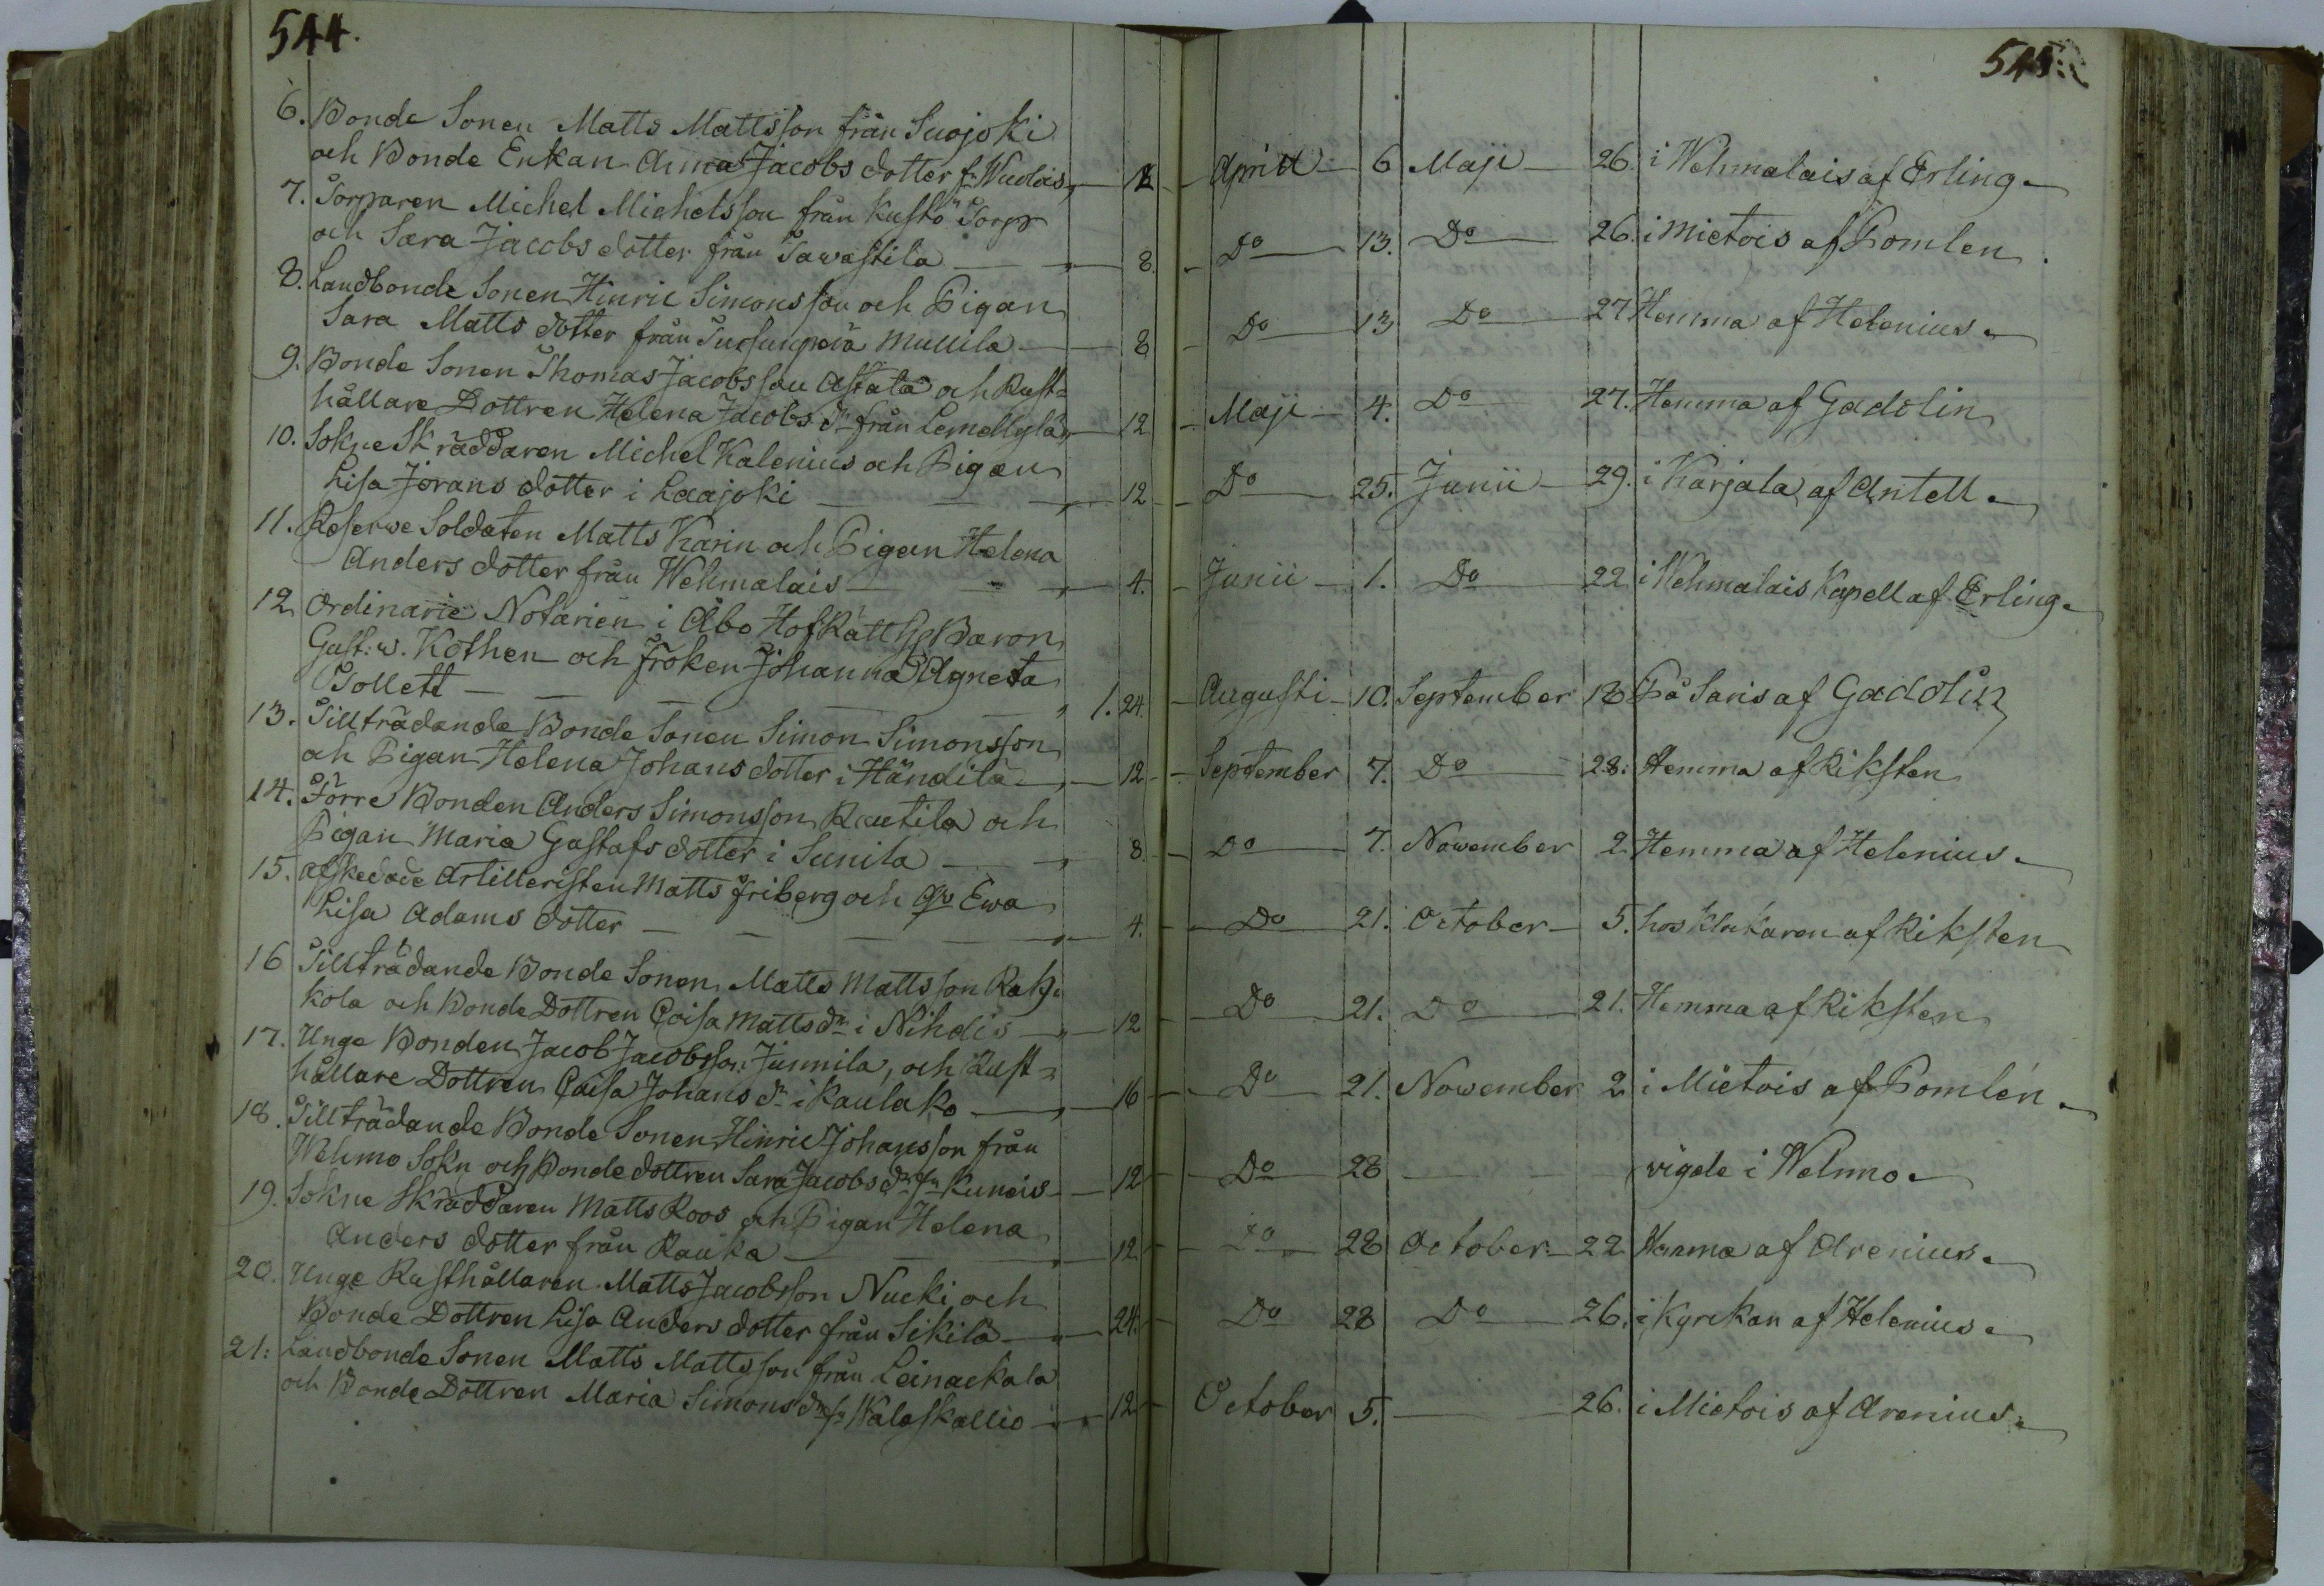 544.
6. Bonde Sonen Matts Mattsson från Suojoki
och Bonde Enkan Anna Jacobs dotter fr.
7. Torparen Michel Michelsson från Kustö Torp
och Sara Jacobs dotter från Tawastila 8.
8. Landbonde Sonen Hinric Simonsson och Pigan
Sara Matts dotter från Mullila 8
9. Bonde Sonen Thomas Jacobsson Astala och Rust=
hållare Dottren Helena Jacobs dr från Lemellylä 12
10. Sokne Skräddaren Michel Kalenius och Pigan
Lisa Jörans dotter i Laajoki 12
11. Reserve Soldaten Matts Karin och Pigan Helena
Anders dotter från Wehmalais 4.
12 Ordinarie Notarien i Åbo HofRätt Baron
Gust: w. Köthen och Fröken Johanna Agneta
Tollett 1. 24.
13. Tillträdande Bonde Sonen Simon Simonsson
och Pigan Helena Johans dotter i Händilä 12
14. Förre Bonden Anders Simonsson Rautila och
Pigan Maria Gustafs dotter i Sunila 8.
15. afskedade Artilleristen Matts Friberg och Ewa
Lisa Adams dotter 4.
16 Tillträdande Bonde Sonen Matts Mattsson
kola och Bonde Dottren Caisa Matts dr i Nihdis 12
17. Unge Bonden Jacob Jacobsson Junnila, och Rust=
hållare Dottren Caisa Johans dr i Kaulako 16
18. Tillträdande Bonde Sonen Hinric Johansson från
Wehmo Sokn och Bonde dottren Sara Jacobs dr fr Kuncis 12
19. Sokne Skräddaren Matts Roos och Pigan Helena
Anders dotter från Rauka 12
20. Unge Rusthållaren Matts Jacobsson Nucki och
Bonde Dottren Lisa Anders dotter från Sikilä 24.
21: Landbonde Sonen Matts Mattsson från Leinackala
och Bonde Dottren Maria Simons dr fr Walaskallio 12
545.
April 6 Maji 26. i Wehmalais af Erling
Do 13. Do 26. i Mietois af Pomlen
Do 13 Do 27 Hemma af Helenius
Maji 4. Do 27. Hemma af Gadolin
Do 25. Junii 29. i Karjala af Antell
Junii 1. Do 22 i Wehmalais Kapell af Erling
Augusti 10. September 18 På Saris af Gadolin
September 7. Do 28. Hemma af Riksten
Do 7. November 2 Hemma af Helenius
Do 21. October 5. hos Klockaren af Riksten
Do 21. Do 21. Hemma af Riksten
Do 21. November 2 i Mietois af Pomlén
Do 28 vigde i Wehmo
Do 28 October 22 Hemma af Arenius
Do 28 Do 26. i Kyrckan af Helenius
October 5. 26. i Mietois af Arenius